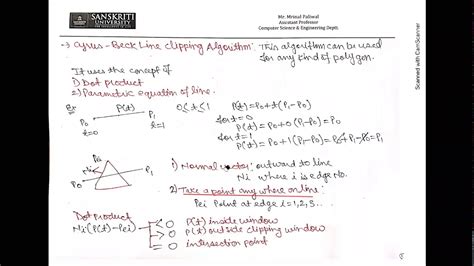 SANSKRITI
UNIVERSITY
Mr. Mrinal Paliwal
Assistant Professor
Computer Science & Engineering Deptt.
→ Cyrus-Beck Line clipping Algorithm: This algorithm can be used
for any kind of polygon.
It uses the concept of
1) Dot product
2) Parametric equation of line.
Ex
P(t)
P0
P1
t=0
t=1
0≤t≤1
P(t) = P0 + t(P1-P0)
for t=0
P(t) = P0 + 0(P1-P0) = P0
for t=1
P(t) = P0 + 1(P1-P0) = P0 + P1 - P0 = P1
Pei
Ni
P0
P1
1) Normal vector: outward to line
Ni where i is edge No.
2) Take a point any where on line:
Pei Point at edge i=1,2,3...
Dot Product
Ni(P(t)-Pei)
<0 P(t) inside window
>0 P(t) outside clipping window
=0 intersection point
Scanned with CamScanner